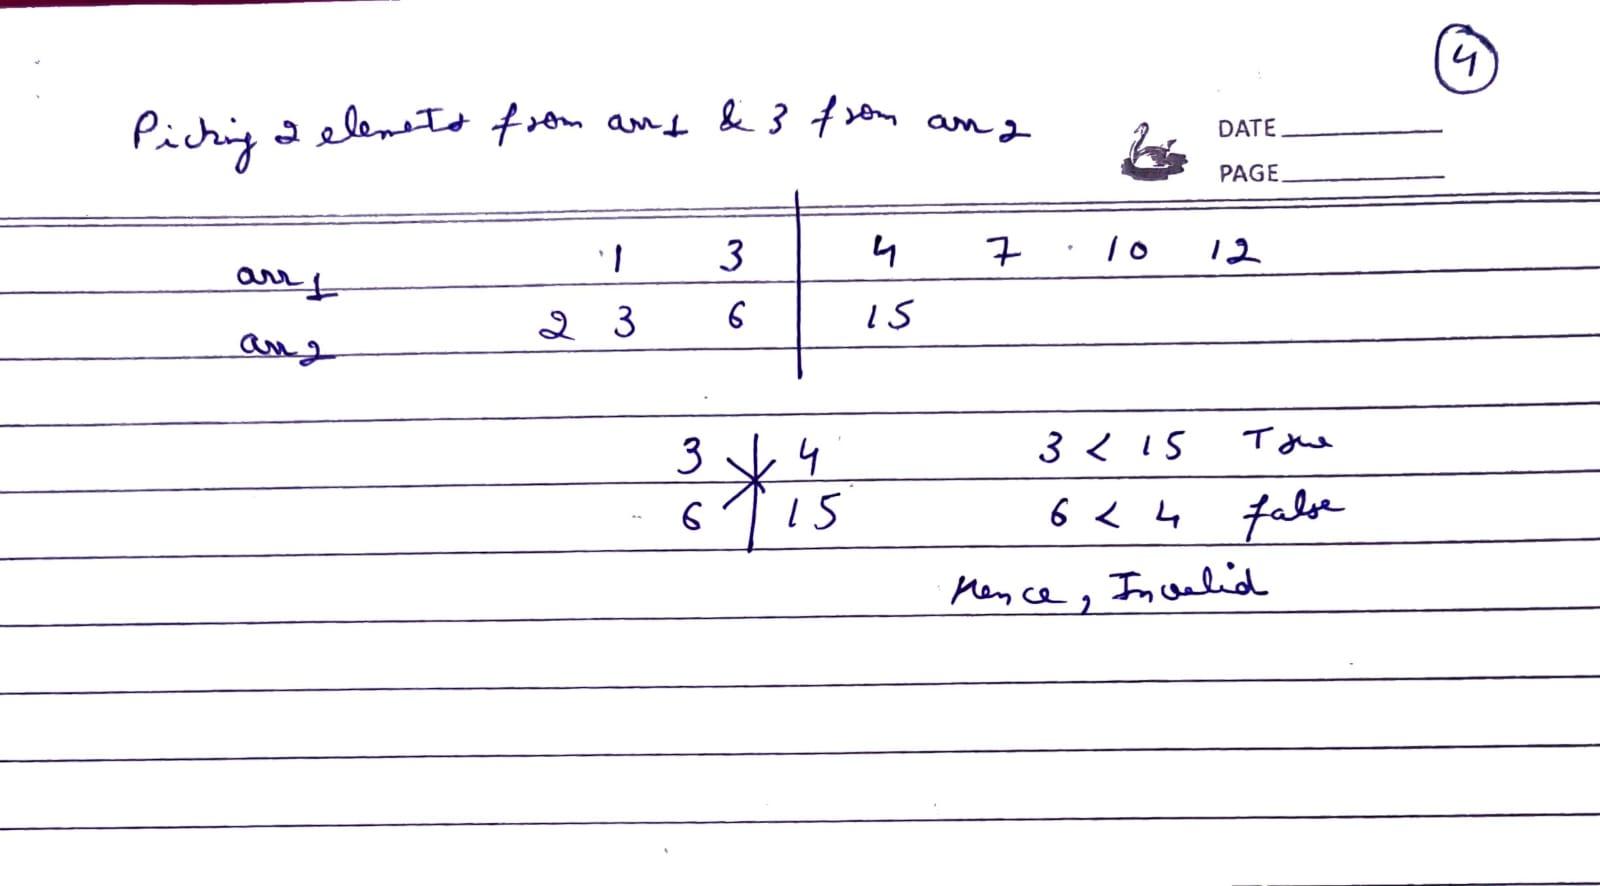 4
Picking 2 elements from arr1 & 3 from arr2
DATE
PAGE
arr1 1 3 4 7 10 12
arr2 2 3 6 15
3 4 3 < 15 True
6 15 6 < 4 false
Hence, Invalid